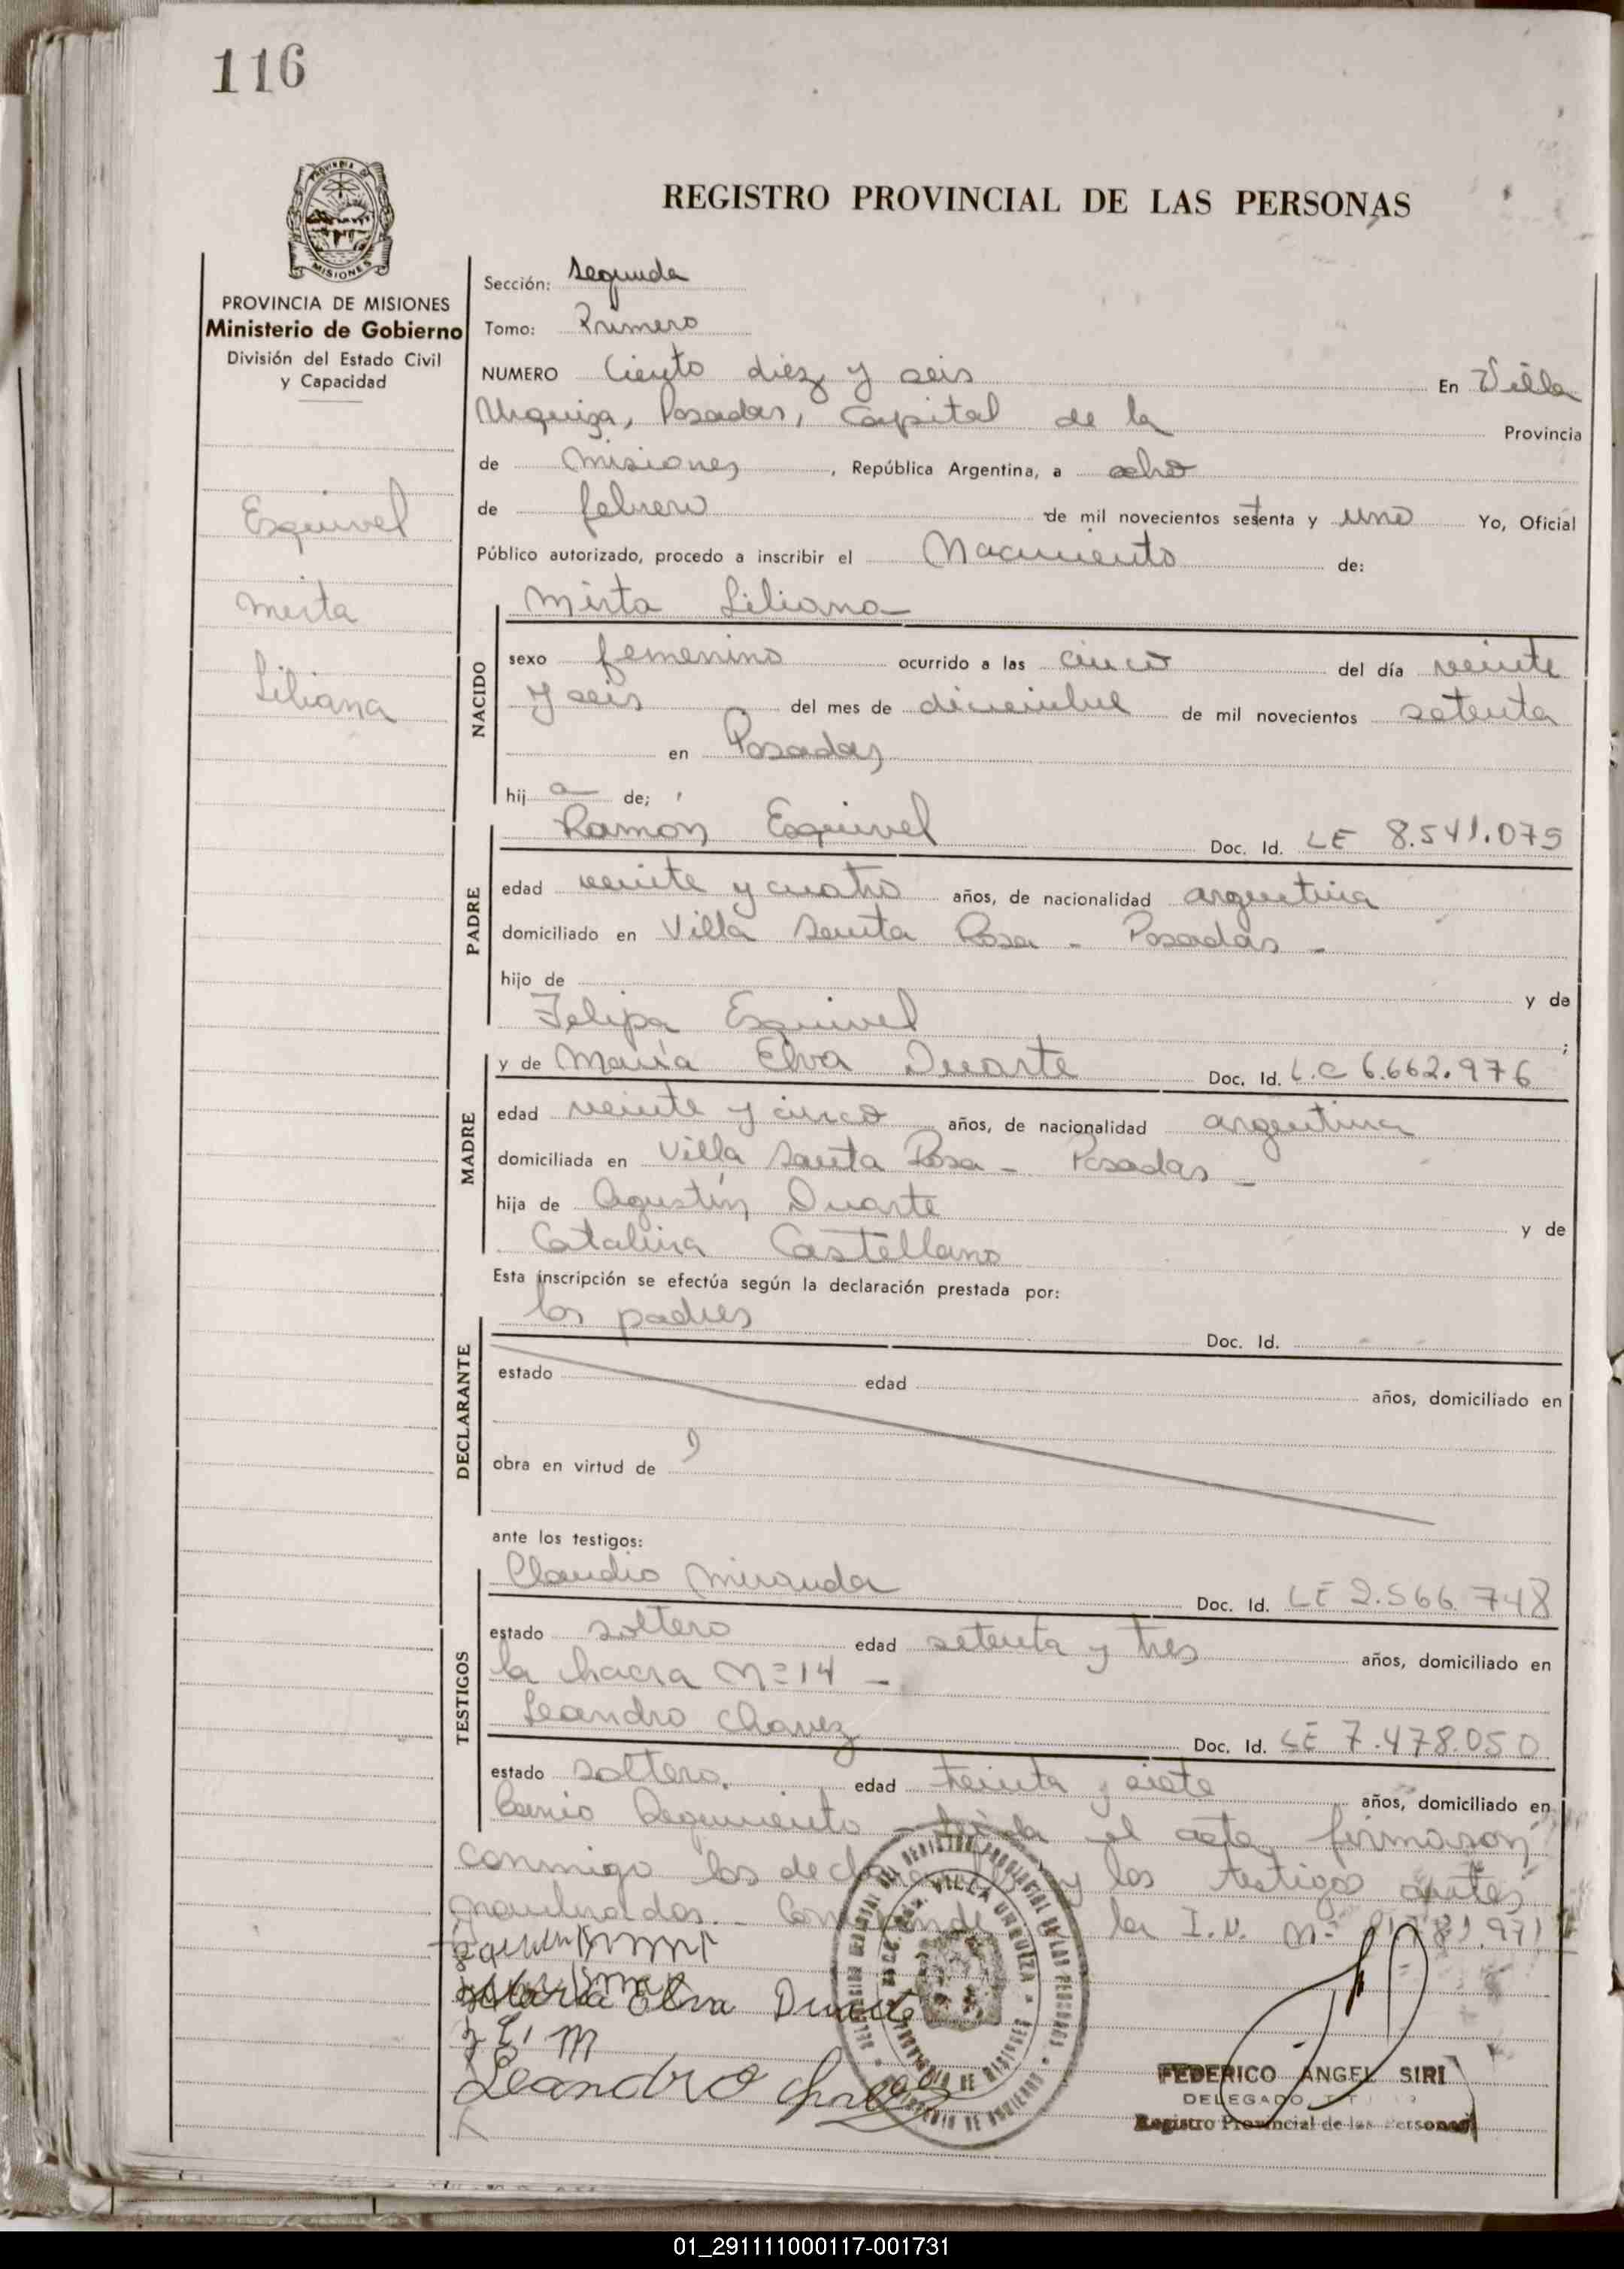 116
PROVINCIA DE MISIONES
PROVINCIA DE MISIONES
Ministerio de Gobierno
División del Estado Civil
y Capacidad
Esquivel
Mirta
Liliana
REGISTRO PROVINCIAL DE LAS PERSONAS
Sección: Segunda
Tomo: Primero
NUMERO Ciento diez y seis En Villa
Urquiza, Posadas, Capital de la Provincia
de Misiones, República Argentina, a ocho
de febrero de mil novecientos setenta y uno Yo, Oficial
Público autorizado, procedo a inscribir el Nacimiento de:
NACIDO
Mirta Liliana
sexo femenino ocurrido a las cinco del día veinte
y seis del mes de diciembre de mil novecientos setenta
en Posadas
hij a de;
PADRE
Ramón Esquivel Doc. Id. LE 8.541.079
edad veinte y cuatro años, de nacionalidad argentina
domiciliado en Villa Santa Rosa - Posadas -
hijo de y de
Felipa Esquivel ;
MADRE
y de María Elva Duarte Doc. Id. L.C 6.662.976
edad veinte y cinco años, de nacionalidad argentina
domiciliada en Villa Santa Rosa - Posadas -
hija de Agustín Duarte y de
Catalina Castellano
Esta inscripción se efectúa según la declaración prestada por:
DECLARANTE
los padres Doc. Id.
estado edad años, domiciliado en
obra en virtud de
ante los testigos:
TESTIGOS
Claudio Miranda Doc. Id. LE 2.566.748
estado soltero edad setenta y tres años, domiciliado en
la chacra Nº 14 -
Leandro Chavez Doc. Id. LE 7.478.050
estado soltero. edad treinta y siete años, domiciliado en
Barrio Regimiento - Leída el acta firmaron
conmigo los declarantes y los testigos antes
nombrados. - la I.N. Nº
María Elva Duarte
Leandro Chavez
VILLA URQUIZA
FEDERICO ANGEL SIRI
DELEGADO
Registro Provincial de las Personas
01_291111000117-001731